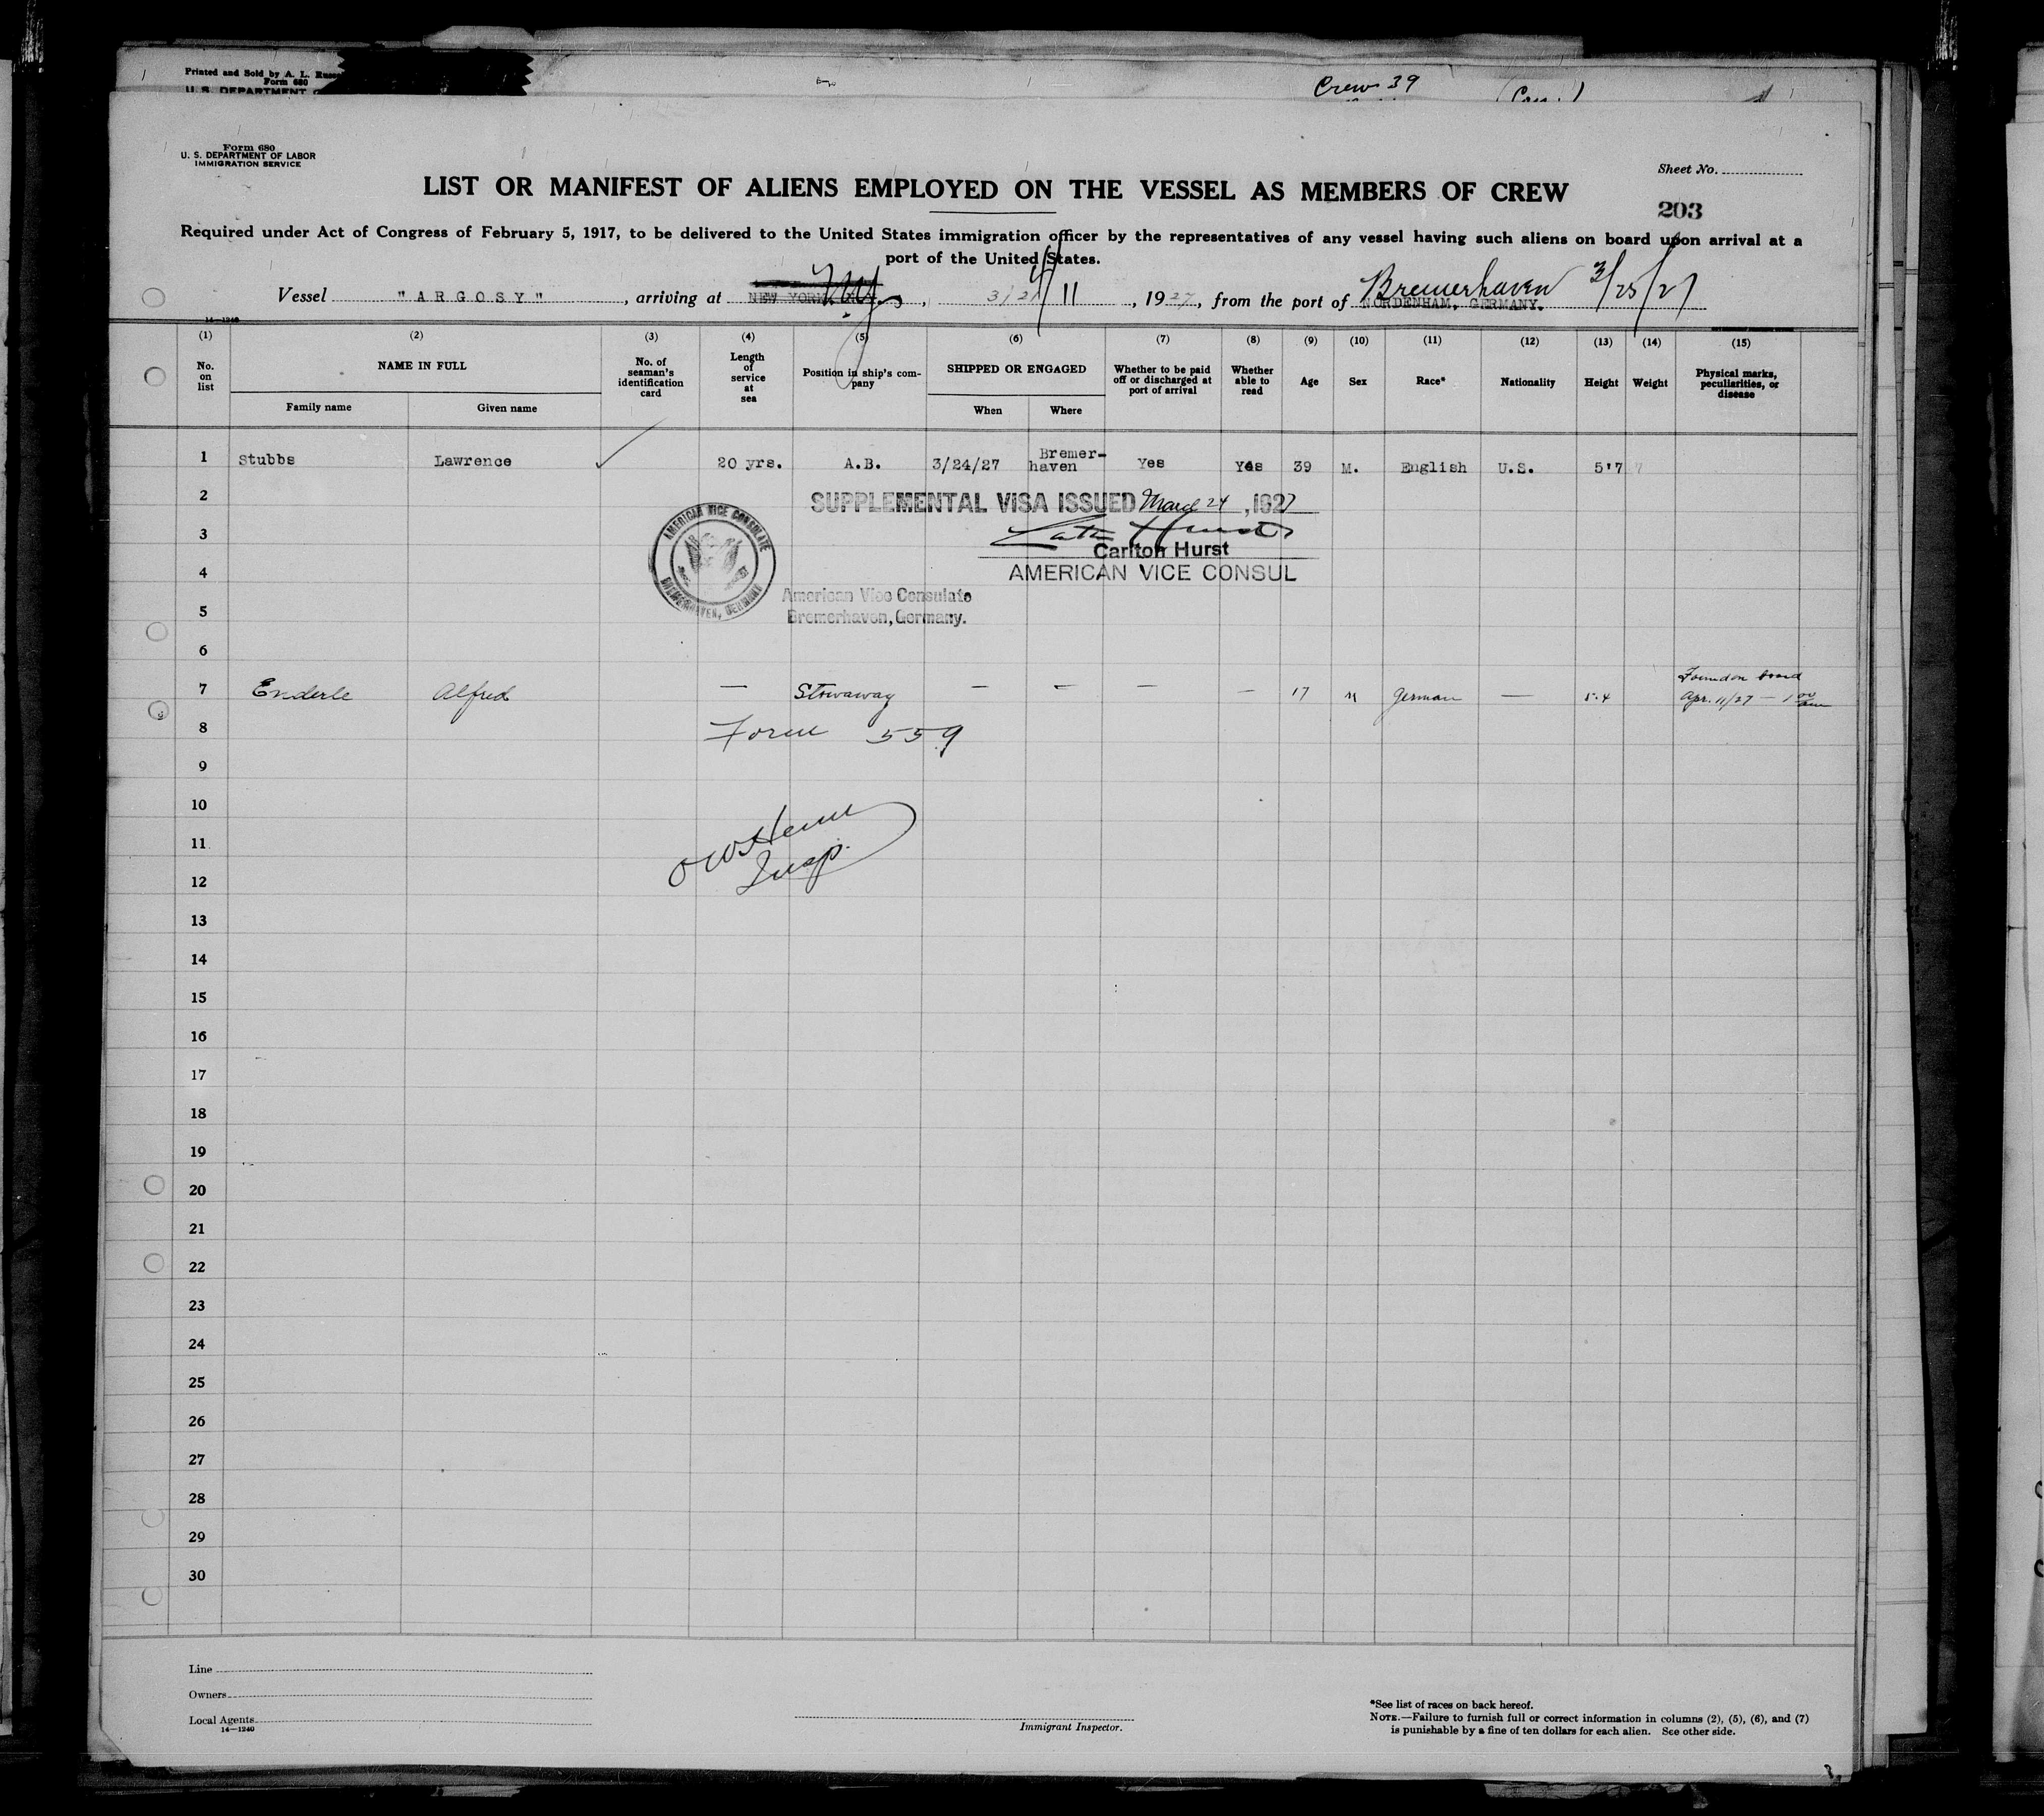 Printed and Sold by A. L.
Form 680
U. S. DEPARTMENT
Crew 39
Form 680
U. S. DEPARTMENT OF LABOR
IMMIGRATION SERVICE
Sheet No.
LIST OR MANIFEST OF ALIENS EMPLOYED ON THE VESSEL AS MEMBERS OF CREW
203
Required under Act of Congress of February 5, 1917, to be delivered to the United States immigration officer by the representatives of any vessel having such aliens on board upon arrival at a
port of the United States.
Bremerhaven 3/25/27
Vessel "ARGOSY", arriving at NEW YORK, 4/11, 1927, from the port of NORDENHAM, GERMANY.
14—1240
(1) (2) (3) (4) (5) (6) (7) (8) (9) (10) (11) (12) (13) (14) (15)
No. on list
NAME IN FULL
Family name
Given name
No. of seaman's identification card
Length of service at sea
Position in ship's company
SHIPPED OR ENGAGED
When
Where
Whether to be paid off or discharged at port of arrival
Whether able to read
Age
Sex
Race*
Nationality
Height
Weight
Physical marks, peculiarities, or disease
1 Stubbs Lawrence ✓ 20 yrs. A.B. 3/24/27 Bremer-haven Yes Yes 39 M. English U.S. 5'7
2 SUPPLEMENTAL VISA ISSUED March 24, 1927
3
Carlton Hurst
4 AMERICAN VICE CONSUL
AMERICAN VICE CONSULATE
BREMERHAVEN, GERMANY
American Vice Consulate
5 Bremerhaven, Germany.
6
7 Enderle Alfred — Stowaway — — — — 17 M German — 5.4 Found on board Apr. 11/27 — 1 00 am
8 Form 559
9
10
11
Insp.
12
13
14
15
16
17
18
19
20
21
22
23
24
25
26
27
28
29
30
Line
Owners
Local Agents
14—1240
Immigrant Inspector.
*See list of races on back hereof.
NOTE.—Failure to furnish full or correct information in columns (2), (5), (6), and (7)
is punishable by a fine of ten dollars for each alien. See other side.